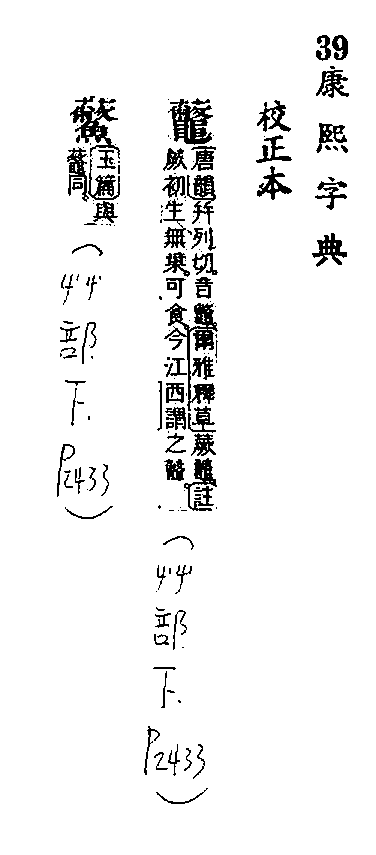 39康熙字典
校正本
虌
唐韻幷列切。音鼈。爾雅釋草蕨虌。註
蕨初生無葉。可食。今江西謂之虌。
(艸部下. P2433)
玉篇與
虌同
(艸部下. P2433)